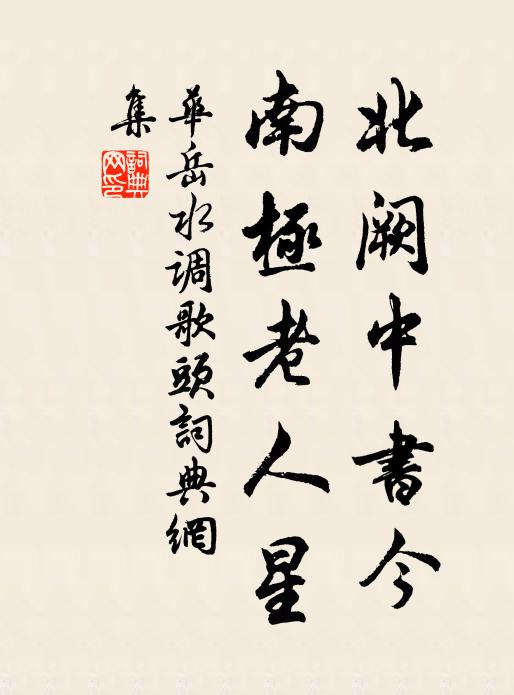 北阙中書令
南極老人星
華岳水调歌頭詞典網
集
詞典
网印